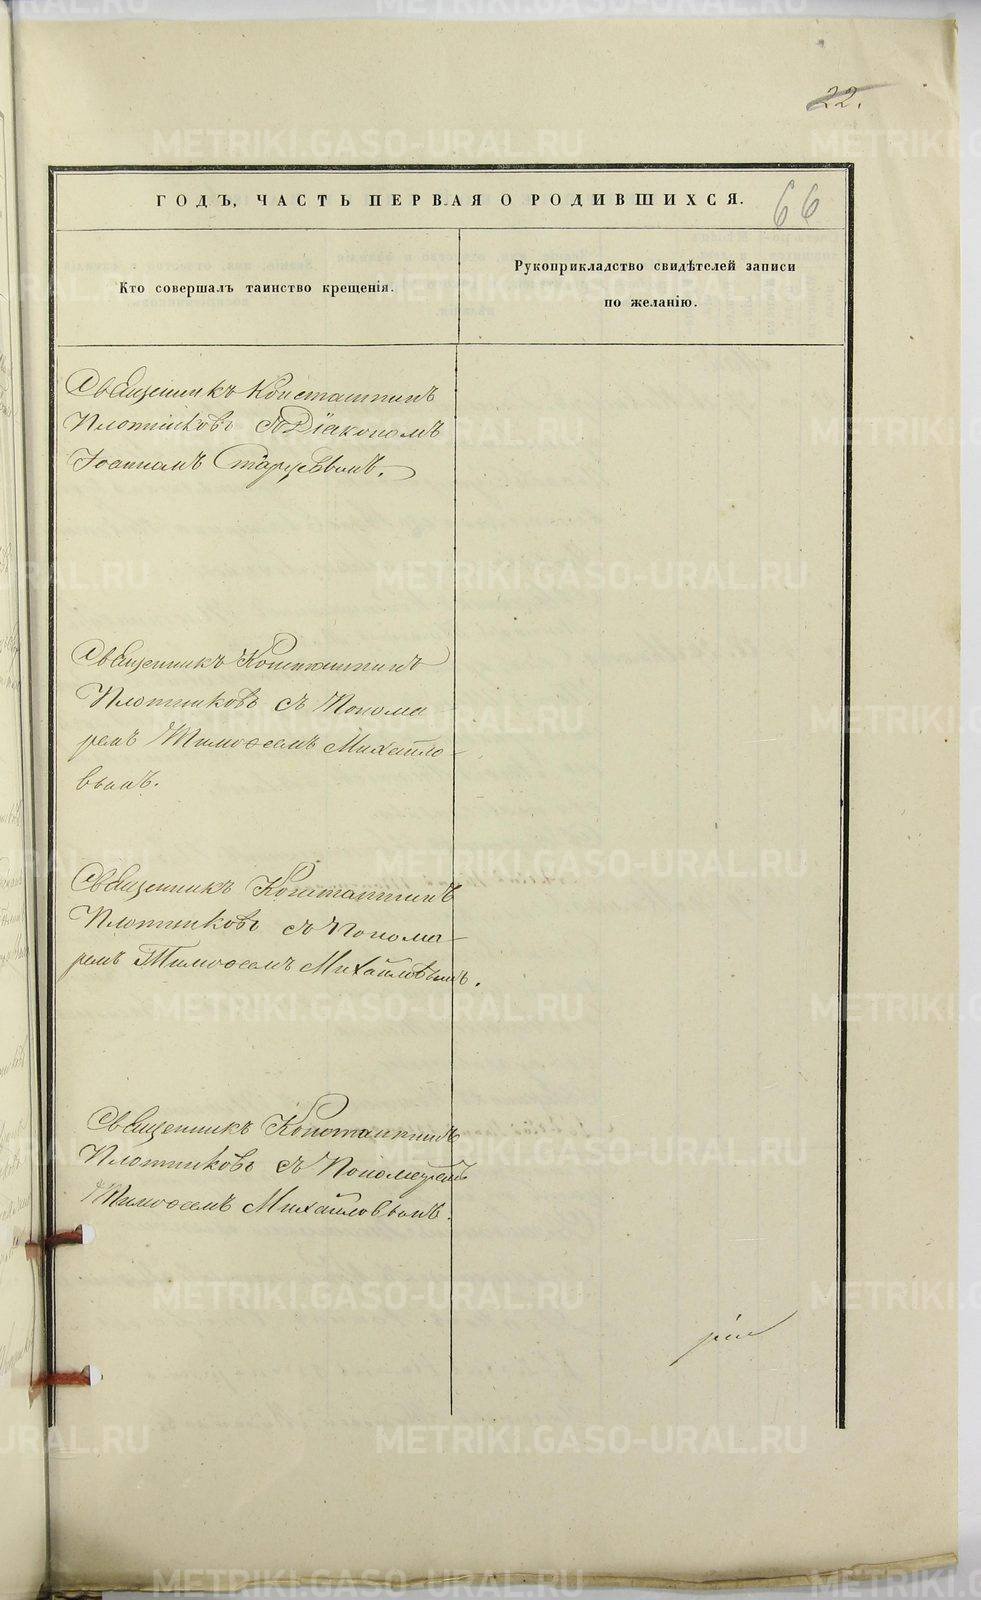 22.
ГОДЪ, ЧАСТЬ ПЕРВАЯ О РОДИВШИХСЯ.
66
Кто совершалъ таинство крещенія.
Рукоприкладство свидѣтелей записи
по желанію.
Священникъ Константинъ
Плотниковъ съ Діакономъ
Іоанномъ
Священникъ Константинъ
Плотниковъ съ Понома
ремъ Тимоѳеемъ Михайло-
вымъ.
Священникъ Константинъ
Плотниковъ съ Понома-
ремъ Тимоѳеемъ Михайловымъ.
Священникъ Константинъ
Плотниковъ съ Пономаремъ
Тимоѳеемъ Михайловымъ.
METRIKI.GASO-URAL.RU